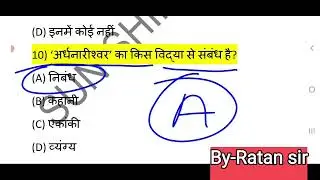 (D) इनमें कोई नहीं
10) ‘अर्धनारीश्वर’ का किस विद्या से संबंध है?
(A) निबंध
(B) कहानी
(C) एकांकी
(D) व्यंग्य
A
By-Ratan sir